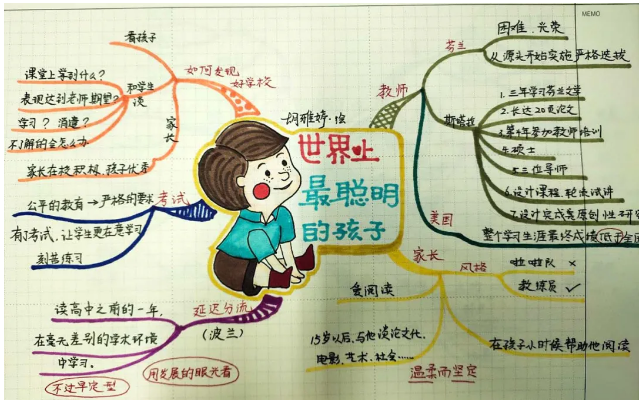 MEMO
世界上
最聪明
的孩子
胡雅婷·绘
如何发现
好学校
看孩子
和学生
谈
课堂上学到什么?
表现达到老师期望?
学习?
不了解的会怎么办
家长
家长在校积极,孩子优秀
考试
公平的教育→严格的要求
有考试,让学生更在意学习
刻苦练习
延迟分流
(波兰)
读高中之前的一年,
在毫无差别的学术环境
中学习。
不过早定型
用发展的眼光看
教师
芬兰
困难、光荣
从源头开始实施严格选拔
1.三年学习芬兰文学
2.长达20页论文
3.第4年参加教师培训
4.硕士
5.三位导师
6.设计课程,轮流试讲
7.设计完成具原创性
美国
整个学习生涯最终成绩低于全国
家长
风格
啦啦队 ×
教练员 ✓
爱阅读
15岁以后,与他谈论文化、
电影、艺术、社会……
在孩子小时候帮助他阅读
温柔而坚定